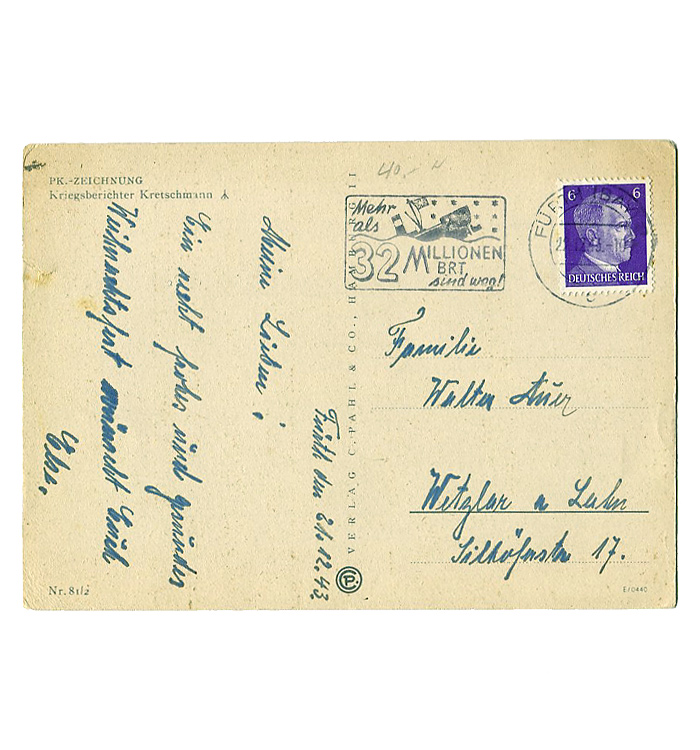 PK.-ZEICHNUNG
Kriegsberichter Kretschmann
Fürth den 21.12.43.
Meine Lieben!
Ein recht frohes und gesundes
Weihnachtsfest wünscht Euch
Else.
Nr. 81/2
VERLAG C. PAHL & CO., HAMBURG 11
CP
40,-
Mehr
als
32 MILLIONEN
BRT
sind weg!
FÜR
6 6
DEUTSCHES REICH
Familie
Walter Auer
Wetzlar a Lahn
Silhöferstr 17.
E/0440